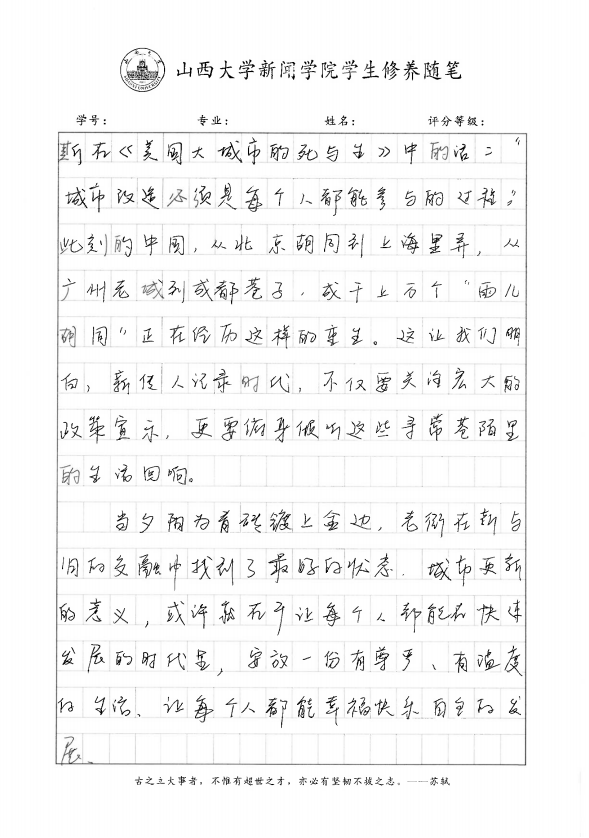 山西大学新闻学院学生修养随笔
学号： 专业： 姓名： 评分等级：
斯在《美国大城市的死与生》中的话："
城市改造必须是每个人都能参与的过程。"
此刻的中国，从北京胡同到上海里弄，从
广州老城到成都巷子，成千上万个"西儿
胡同"正在经历这样的重生。这让我们明
白，新传人记录时代，不仅要关注宏大的
政策宣示，更要俯身倾听这些寻常巷陌里
的生活回响。
当夕阳为青砖镀上金边，老街在新与
旧的交融中找到了最好的状态，城市更新
的意义，或许就在于让每个人都能在快速
发展的时代里，安放一份有尊严、有温度
的生活、让每个人都能幸福快乐自主的发
展、
古之立大事者，不惟有超世之才，亦必有坚韧不拔之志。——苏轼